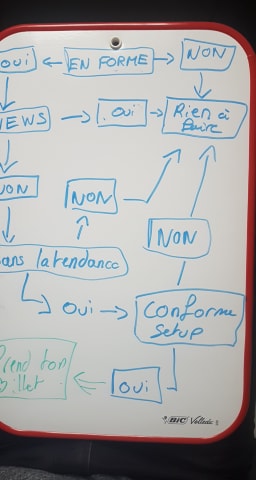 OUI
EN FORME
NON
NEWS
OUI
Rien à
faire
NON
NON
NON
Dans la tendance
OUI
Conforme
setup
Prend ton
billet
OUI
BIC Velleda